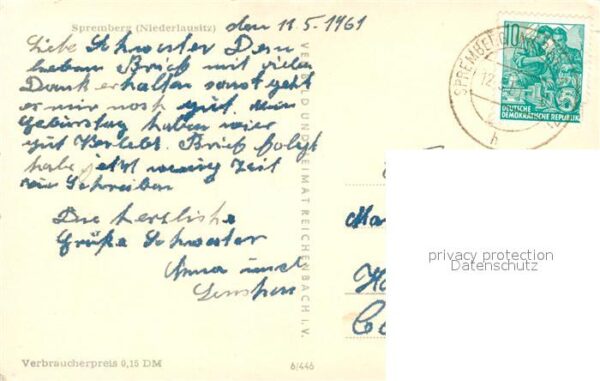 Spremberg (Niederlausitz)
den 11.5.1961
Liebe Schwester Dein
lieben Brief mit vielen
Dank erhalten sonst geht
es mir noch gut. Mein
Geburstag haben wier
gut Verlebt. Brief folgt
habe jetzt wenig Zeit
zu Schreiben
Die herzlishe
Grüße Schwester
Anna und
VERLAG BILD UND HEIMAT REICHENBACH i. V.
Verbraucherpreis 0,15 DM
6/446
10
5
DEUTSCHE
DEMOKRATISCHE REPUBLIK
SPREMBERG
12
h
Ma
Ha
privacy protection
Datenschutz